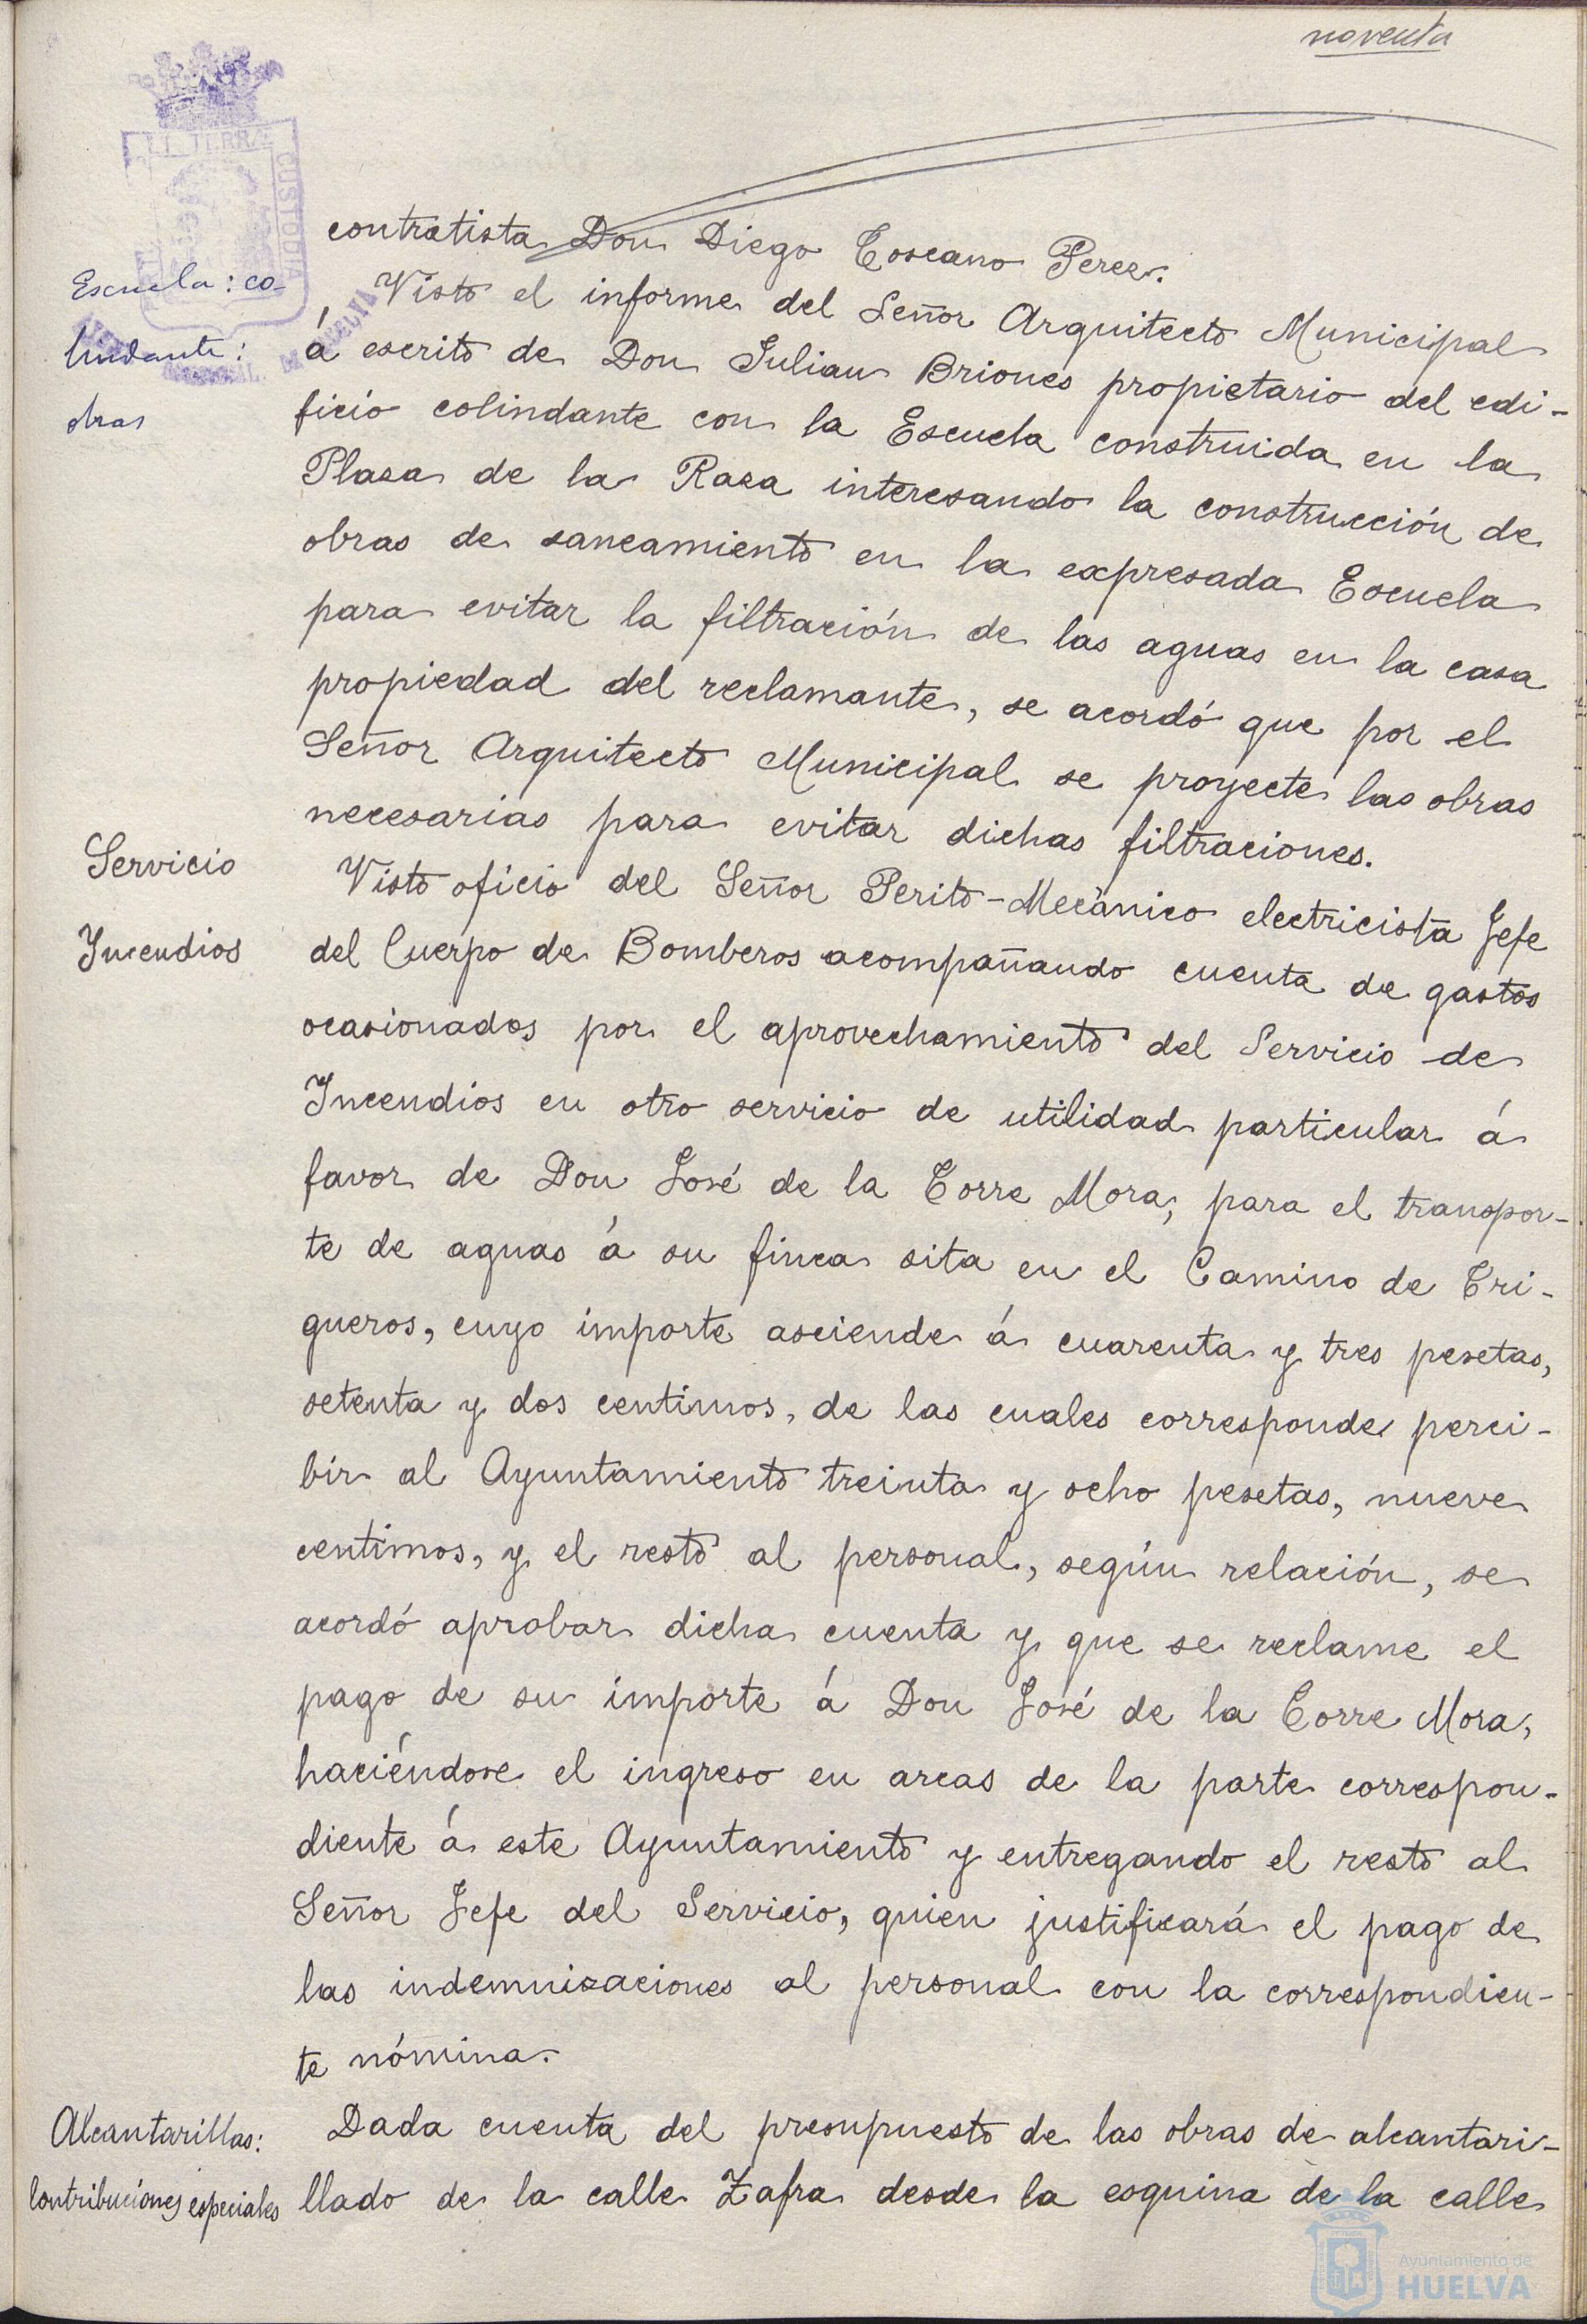 noventa
contratista Don Diego Toscano Perez.
Escuela: co-
lindante:
obras
Visto el informe del Señor Arquitecto Municipal
á escrito de Don Julian Briones propietario del edi-
ficio colindante con la Escuela construida en la
Plaza de la Raza interesando la construcción de
obras de saneamiento en la expresada Escuela
para evitar la filtración de las aguas en la casa
propiedad del reclamante, se acordó que por el
Señor Arquitecto Municipal se proyecte las obras
necesarias para evitar dichas filtraciones.
Servicio
Incendios
Visto oficio del Señor Perito-Mecánico electricista Jefe
del Cuerpo de Bomberos acompañando cuenta de gastos
ocasionados por el aprovechamiento del Servicio de
Incendios en otro servicio de utilidad particular á
favor de Don José de la Torre Mora, para el transpor-
te de aguas á su finca sita en el Camino de Tri-
gueros, cuyo importe asciende á cuarenta y tres pesetas,
setenta y dos centimos, de las cuales corresponde perci-
bir al Ayuntamiento treinta y ocho pesetas, nueve
centimos, y el resto al personal, según relación, se
acordó aprobar dicha cuenta y que se reclame el
pago de su importe á Don José de la Torre Mora,
haciéndose el ingreso en arcas de la parte correspon-
diente á este Ayuntamiento y entregando el resto al
Señor Jefe del Servicio, quien justificará el pago de
las indemnizaciones al personal con la correspondien-
te nómina.
Alcantarillas:
Contribuciones especiales
Dada cuenta del presupuesto de las obras de alcantari-
llado de la calle Zafra desde la esquina de la calle
Ayuntamiento de
HUELVA